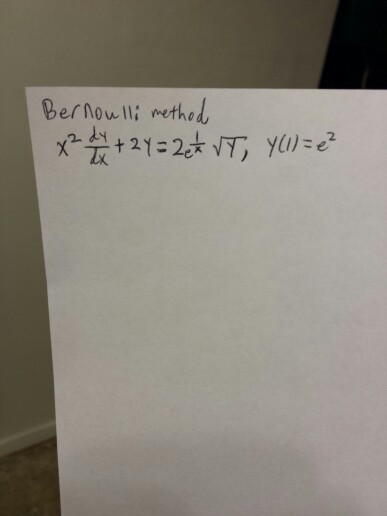 Bernoulli method
x² dy/dx + 2y = 2e^(1/x) √y, y(1) = e²